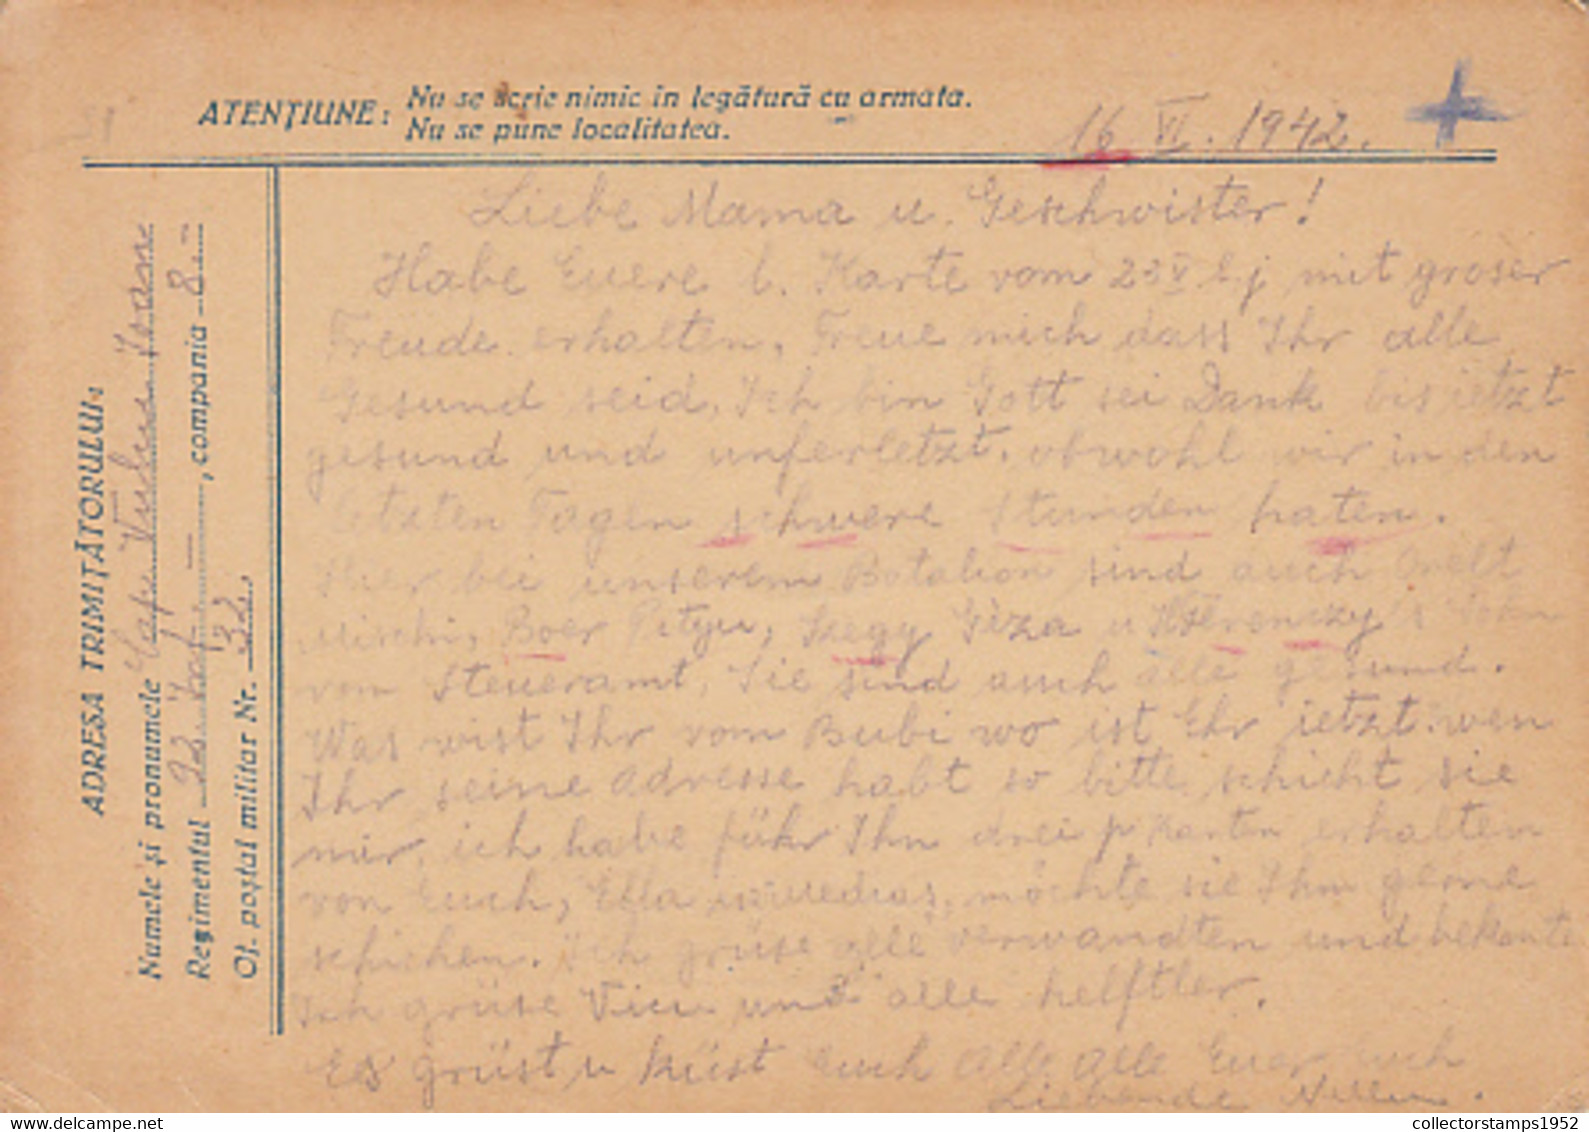 ATENȚIUNE: Nu se scrie nimic în legătură cu armata.
Nu se pune localitatea.
16 VI. 1942.
ADRESA TRIMIȚĂTORULUI:
Numele și pronumele Cap. Ioan
Regimentul 92 Inf. — , compania 8.
Of. poștal militar Nr. 132.
Liebe Mama u. Geschwister!
Habe Euere l. Karte vom 23 V l. j mit groser
Freude erhalten, Freue mich dass Ihr alle
Gesund seid. Ich bin Gott sei Dank bis ietzt
gesund und unferletzt. obwohl wir in den
letzten Tagen schwere Stunden haten.
Hier bei unserem Batalion sind auch
Mischi, Boer Pityu, Szegy Géza u
vom Steueramt, Sie sind auch alle gesund.
Was wist Ihr vom Bubi wo ist Ehr ietzt. wen
Ihr seine Adresse habt so bitte schickt sie
mir, ich habe führ Ihn drei p. Karten erhalten
von Euch, Ella möchte sie Ihm gerne
schicken. Ich grüse alle verwandten und bekante
Ich grüse und alle helftler.
Es grüst u küst Euch Alle Alle Euer Euch
Liebende
collectorstamps1952